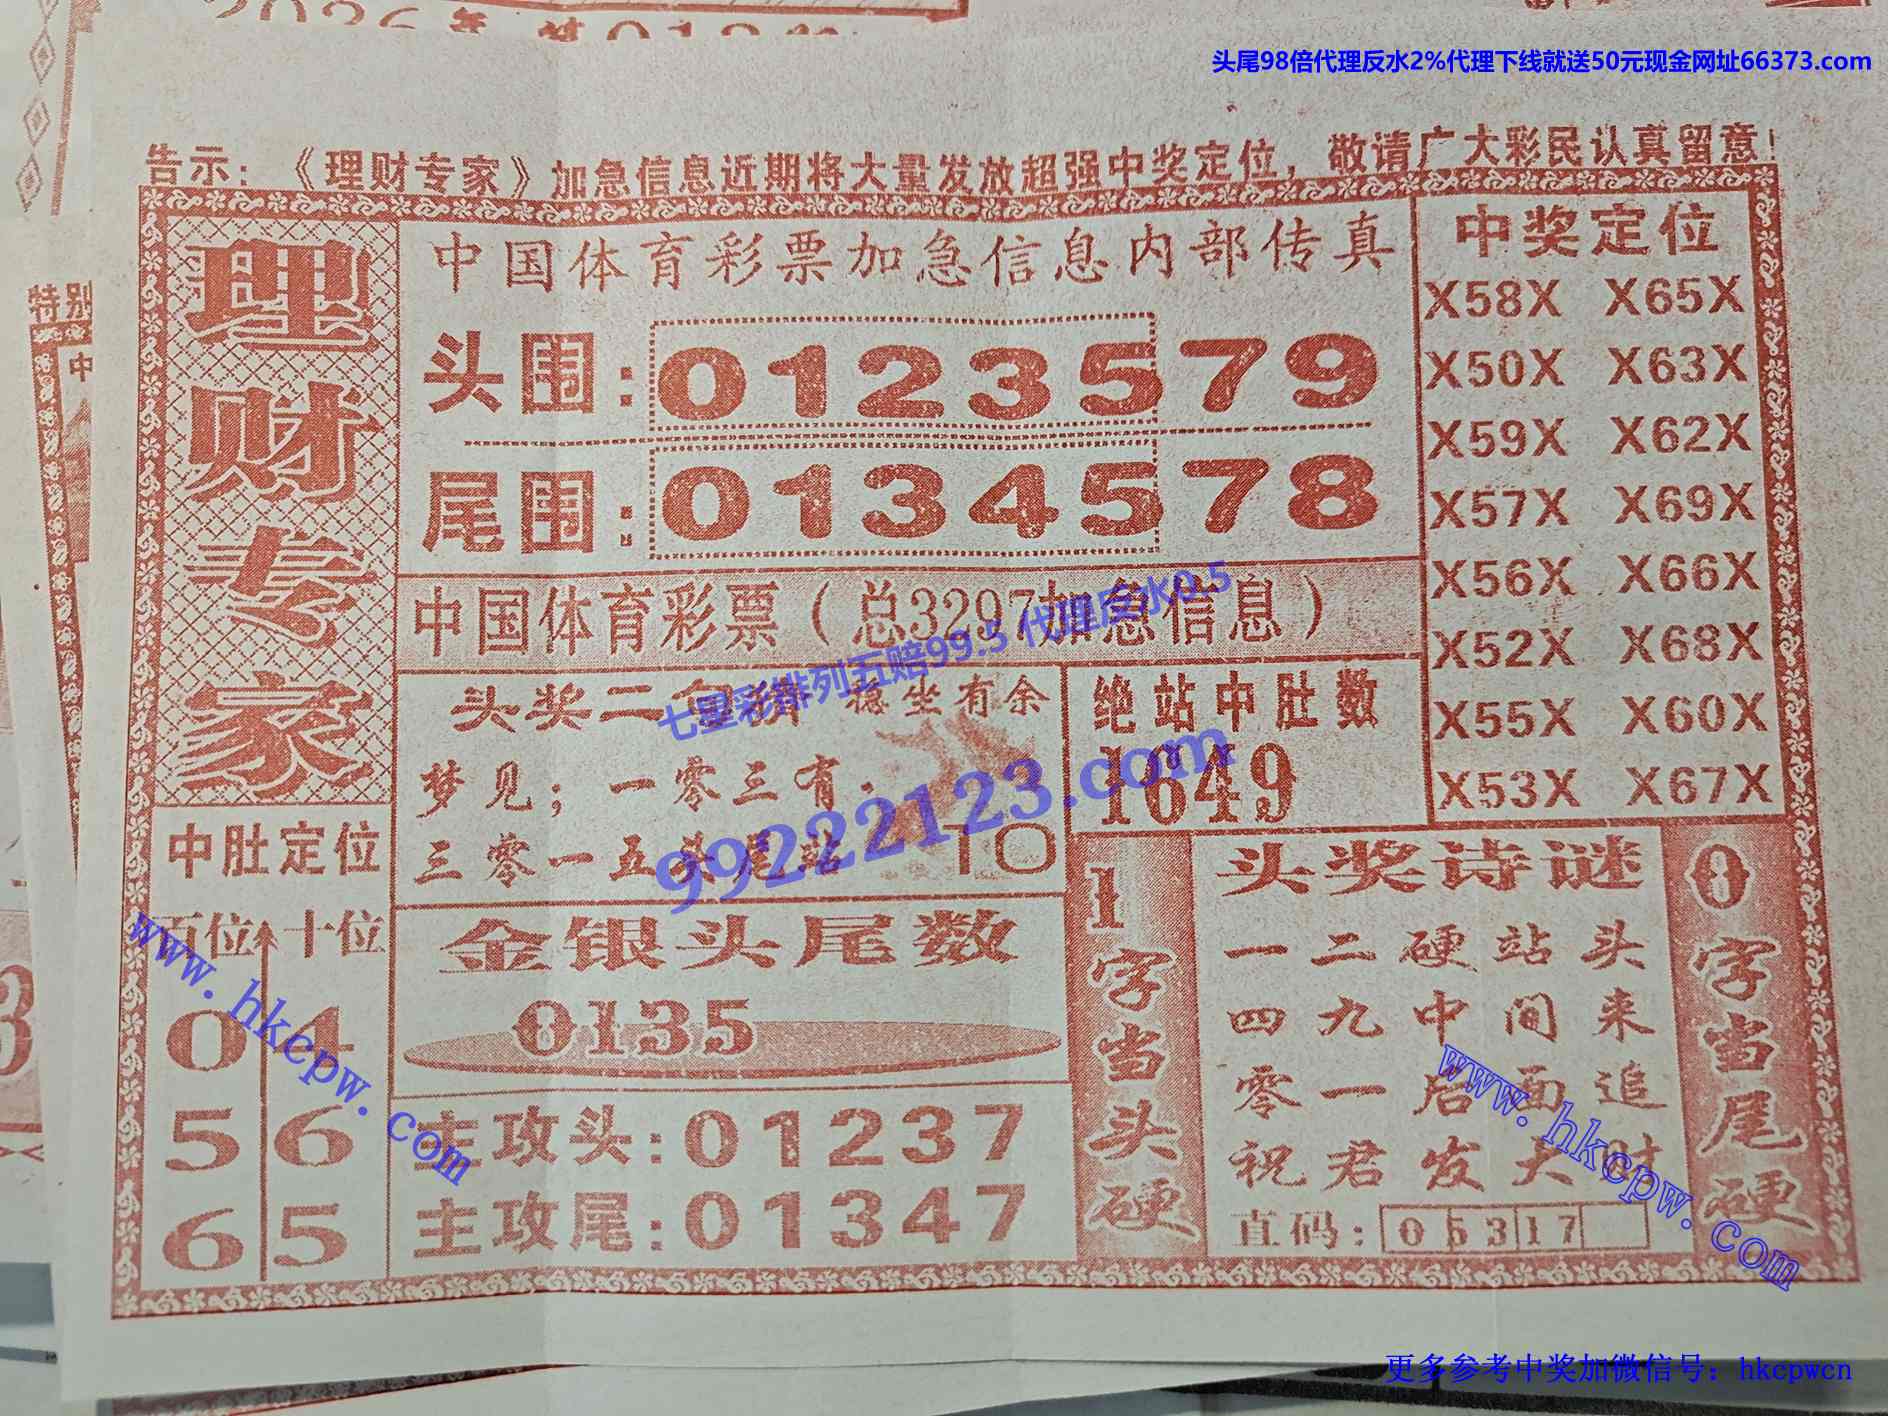 2026年 第012
头尾98倍代理反水2%代理下线就送50元现金网址66373.com
告示：《理财专家》加急信息近期将大量发放超强中奖定位，敬请广大彩民认真留意！
特别
中
理财专家
中国体育彩票加急信息内部传真
头围：0123579
尾围：0134578
中国体育彩票（总3297加急信息）
中奖定位
X58X X65X
X50X X63X
X59X X62X
X57X X69X
X56X X66X
X52X X68X
X55X X60X
X53X X67X
七星彩排列五赔99.5 代理反水0.5
99222123.com
头奖二 稳坐有余
梦见；一零三有.
三零一五头尾站
10
绝站中肚数
1649
中肚定位
百位 十位
0 4
5 6
6 5
金银头尾数
0135
主攻头：01237
主攻尾：01347
1字当头硬
头奖诗谜
一二硬站头
四九中间来
零一后面追
祝君发大财
直码：05317
0字当尾硬
www.hkcpw.com
www.hkcpw.com
3
更多参考中奖加微信号：hkcpwcn